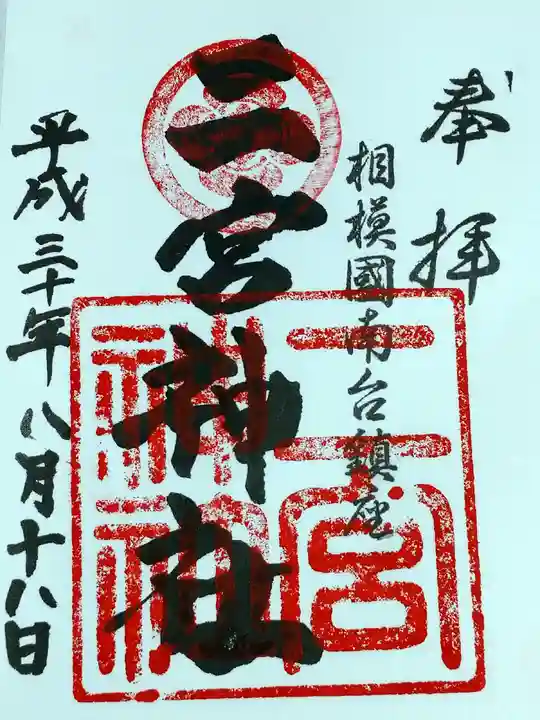 奉拝
相模國南台鎮座
二宮神社
平成三十年八月十八日
二宮
神社